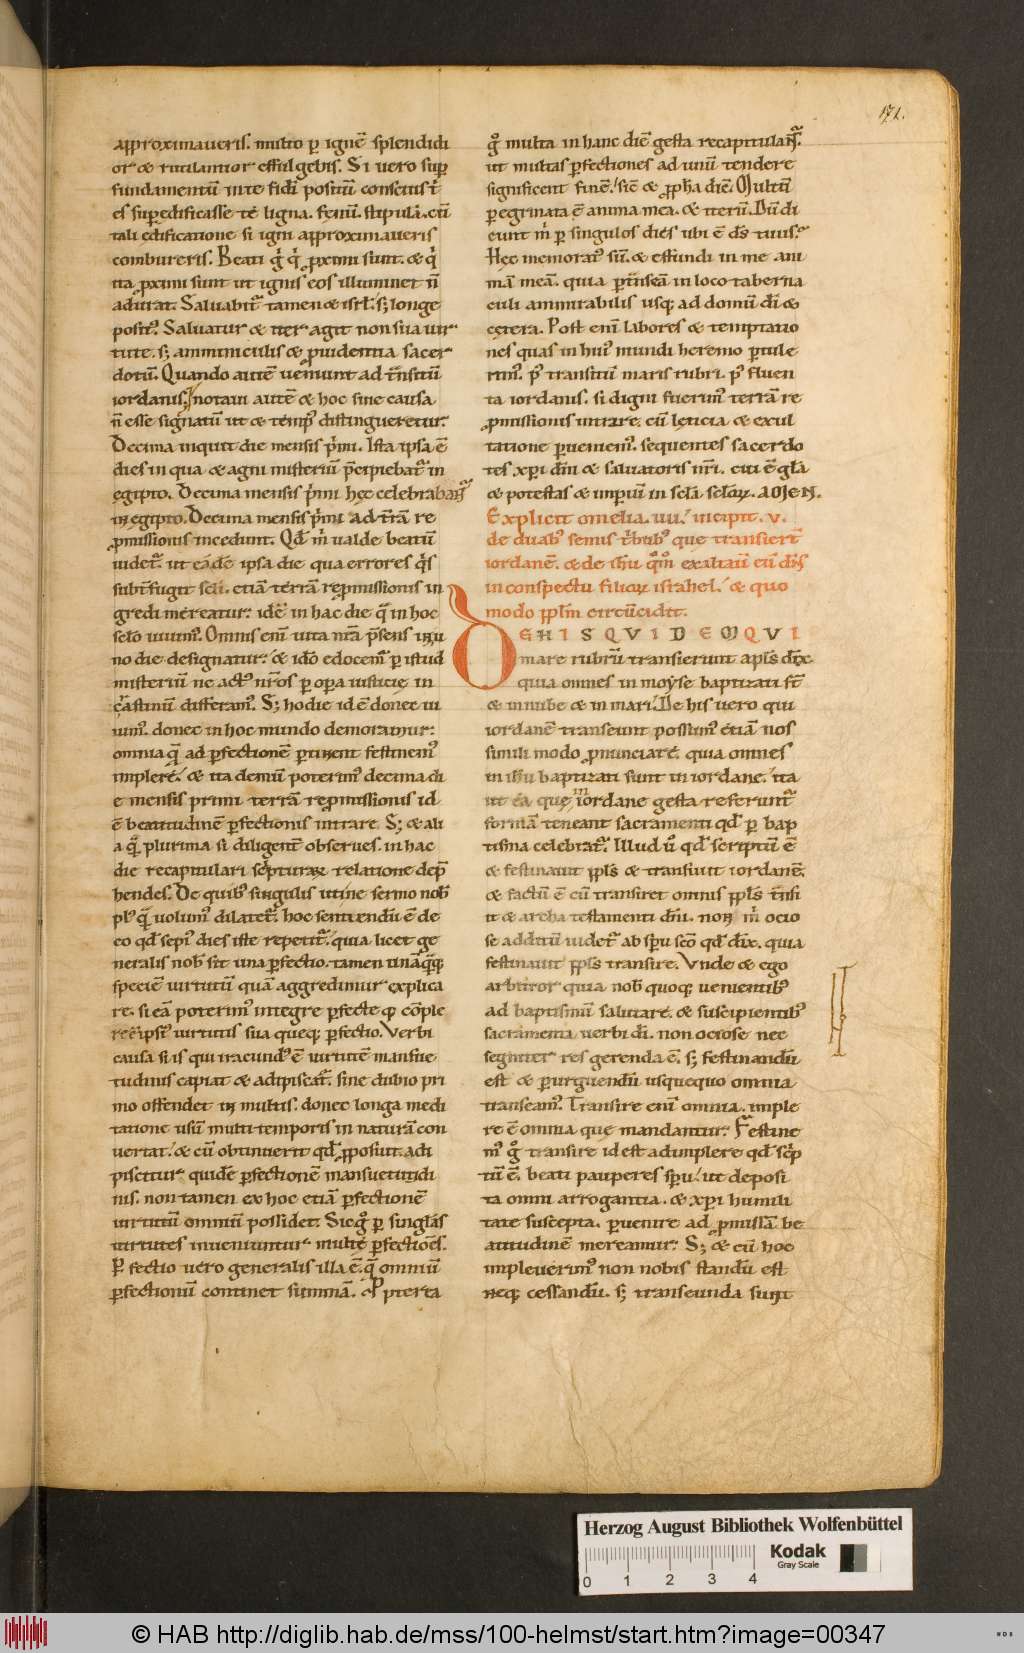 171.
approximaveris. multo ꝑ ignē splendidi
or & rutilantior effulgebis. Si vero suꝑ
fundamentū in te fidei positū conscius t̄
es suꝑedificasse te ligna. fenū. stipulā. cū
tali edificatione si igni approximaveris
combureris. Beati g̊ q̇ proximi sunt. & q̇
ita proximi sunt ut ignis eos illuminet n̄
adurat. Saluabit᷑ tamen & isrl̄. sꝫ longe
posit᷒. Saluatur & iter agit non sua uir
tute. sꝫ amminiculis & ꝓuidentia sacer
dotū. Quando autē ueniunt ad trāsitū
iordanis. notaui autē & hoc sine causa
n̄ esse signatū ut & temp᷒ distingueretur.
Decima inquit die mensis p̄mi. Ista ipsa ē
dies in qua & agni misteriū p̄cipiebat᷑ in
egipto. Decima mensis p̄mi hęc celebrabant᷑
in egipto. Decima mensis p̄mi ad t̄rā re
ꝓmissionis incedunt. Qđ m̄ ualde beatū
uidet᷑. ut eadē ipsa die qua errores q̇s
subt̄fugit sc̄li. etiā terrā reꝓmissionis in
gredi mereatur. idē in hac die q̄ in hoc
sc̄lo uiuim᷒. Omnis enī uita nr̄a p̄sens in u
no die designatur. & idō edocem᷒ ꝑ istud
misteriū ne act᷒ nr̄os ꝑ oꝑa iusticię in
c̄astinū differam᷒. Sꝫ hodie id ē donec ui
uim᷒. donec in hoc mundo demoramur.
omnia q̄ ad ꝑfectionē ꝑtinent festinem᷒
implere. & ita demū poterim᷒ decima di
e mensis primi terrā reꝓmissionis id
ē beatitudinē ꝑfectionis intrare. Sꝫ & ali
a q̄ plurima si diligent᷑ obserues. in hac
die recapitulari scripturaꝝ relatione dep̄
hendes. De quib᷒ singulis utine sermo nob̄
pl᷒ q̄ uolum᷒ dilatet᷑. hoc sentiendū ē de
eo qđ sepi᷒ dies iste repetit᷑. quia licet ge
neralis nob̄ sit una ꝑfectio. tamen unāq̄qꝫ
speciē uirtutū quā aggredimur explica
re. si eā poterim᷒ integre ꝑfecte qꝫ cōple
re. ē ipsi᷒ uirtutis sua queqꝫ ꝑfectio. Verbi
causa si is qui iracund᷒ ē uirtutē mansue
tudinis capiat & adipiscat᷑. sine dubio pri
mo offendet in multis. donec longa medi
tatione usū multi temporis in naturā con
uertat. & cū obtinuerit qđ ꝓposuit. adi
piscitur quidē ꝑfectionē mansuetudi
nis. non tamen ex hoc etiā ꝑfectionē
uirtutū omniū possidet. Sic g̊ ꝑ singlās
uirtutes inueniuntur multe ꝑfectiōes.
Ꝑfectio uero generalis illa ē. q̄ omniū
ꝑfectionū continet summā. Ꝓpterea
g̊ multa in hanc diē gesta recapitulant᷑.
ut multas ꝑfectiones ad unū tendere
significent finē. sic̄ & ꝓph̄a dic̄. Multū
ꝑegrinata ē anima mea. & iterū. Dū di
cunt m̄ ꝑ singulos dies ubi ē ds̄ tuus.
Hęc memorat᷒ sū. & effundi in me ani
mā meā. quia ꝑt̄nseā in loco taberna
culi ammirabilis usqꝫ ad domū dī &
cetera. Post enī labores & temptatio
nes quas in hui᷒ mundi heremo ꝑtule
rim᷒. p᷒ transitū maris rubri. p᷒ fluen
ta iordanis. si digni fuerim᷒ terrā re
ꝓmissionis intrare. cū leticia & exul
tatione ꝑueniem᷒. sequentes sacerdo
tes xp̄i dn̄i & saluatoris nr̄i. cui ē gl̄a
& potestas & imperiū in sc̄la sc̄loꝝ. AMEN.
Explicit omelia. IIII. incipit. V.
de duab᷒ semis trib᷒ que transierᵗ
iordanē. & de ih̄u qm̊o exaltauit eū dn̄s
in conspectu filioꝝ israhel. & quo
modo ppl̄m circūcidit.
DE HIS QVIDEM QVI
mare rubrū transierunt apl̄s dix̄.
quia omnes in moyse baptizati st̄
& in nube & in mari. De his uero qui
iordanē transeunt possum᷒ etiā nos
simili modo ꝓnunciare. quia omnes
in ih̄u baptizati sunt in iordane. ita
ut ea que in iordane gesta referunt᷑
formā teneant sacramenti qđ ꝑ bap
tisma celebrat᷑. Illud u̇ qđ scriptū ē
& festinauit ppl̄s & transiuit iordanē.
& factū ē cū transiret omnis ppl̄s t̄nsi
it & archa testamenti dn̄i. non m̄ ocio
se additū uidet᷑ ab sp̄u sc̄o qđ dix̄. quia
festinauit ppl̄s transire. Vnde & ego
arbitror quia nob̄ quoqꝫ uenientib᷒
ad baptismū salutare. & suscipientib᷒
sacramenta uerbi dī. non ociose nec
segniter res gerenda ē. sꝫ festinandū
est & ꝑurguendū usquequo omnia
transeam᷒. Transire enī omnia. imple
re ē omnia que mandantur. Festine
m᷒ g̊ transire id est adimplere qđ sc̄p
tū ē. beati pauperes sp̄u. ut deposi
ta omni arrogantia. & xp̄i humili
tate suscepta. ꝑuenire ad ꝓmissā be
atitudinē mereamur. Sꝫ & cū hoc
impleuerim᷒ non nobis standū est
neqꝫ cessandū. sꝫ transeunda sunt
Herzog August Bibliothek Wolfenbüttel
Kodak
Gray Scale
0 1 2 3 4
© HAB http://diglib.hab.de/mss/100-helmst/start.htm?image=00347